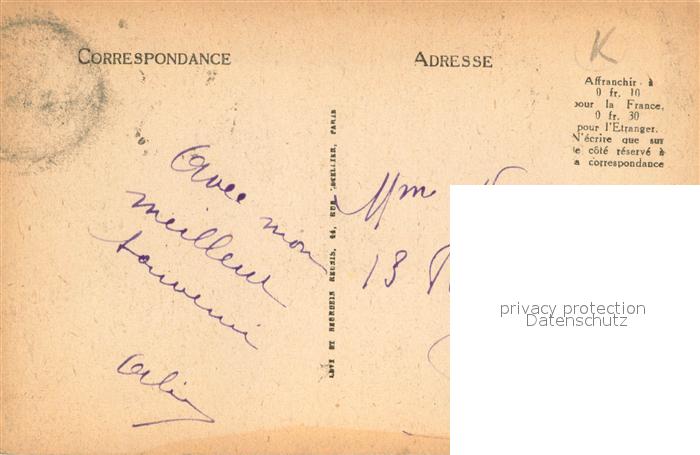 CORRESPONDANCE
Avec mon
meilleur
souvenir
LEVY ET NEURDEIN REUNIS, 44, RUE LETELLIER, PARIS
ADRESSE
K
Affranchir à
0 fr. 10
pour la France,
0 fr. 30
pour l'Etranger.
N'écrire que sur
le côté réservé à
la correspondance
Mme
13
privacy protection
Datenschutz